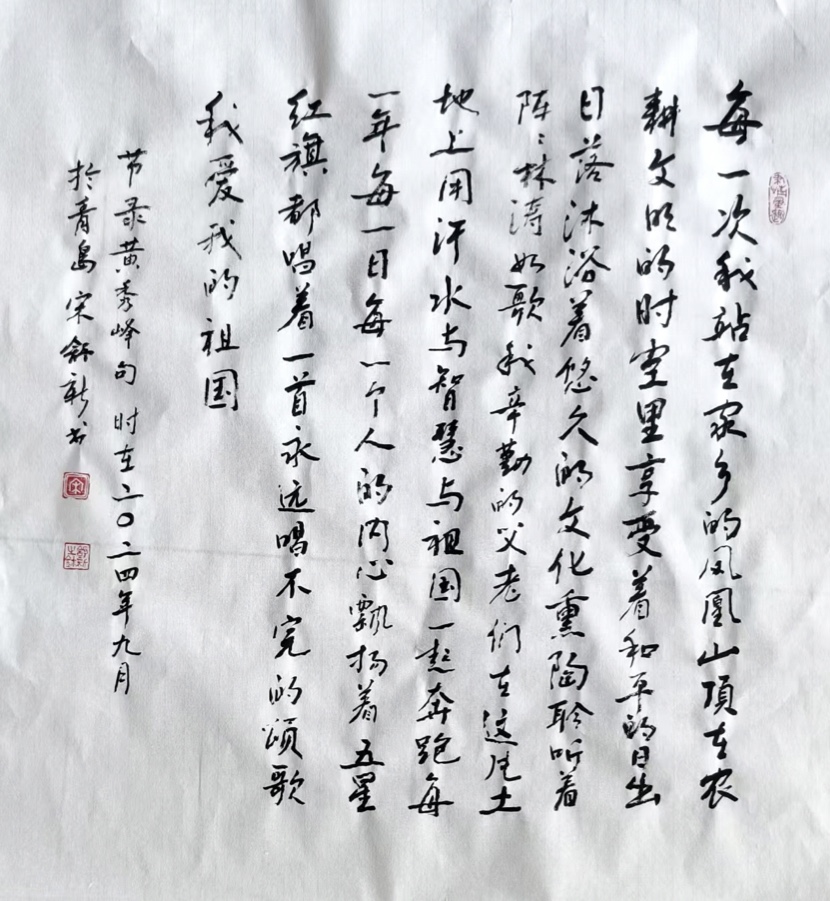 每一次我站在家乡的凤凰山顶在农
耕文明的时空里享受着和平的日出
日落沐浴着悠久的文化熏陶聆听着
阵々林涛如歌我辛勤的父老们在这片土
地上用汗水与智慧与祖国一起奔跑每
一年每一日每一个人的内心飘扬着五星
红旗都唱着一首永远唱不完的颂歌
我爱我的祖国
节录黄秀峰句 时在二〇二四年九月
于青岛 宋舒新书
宋